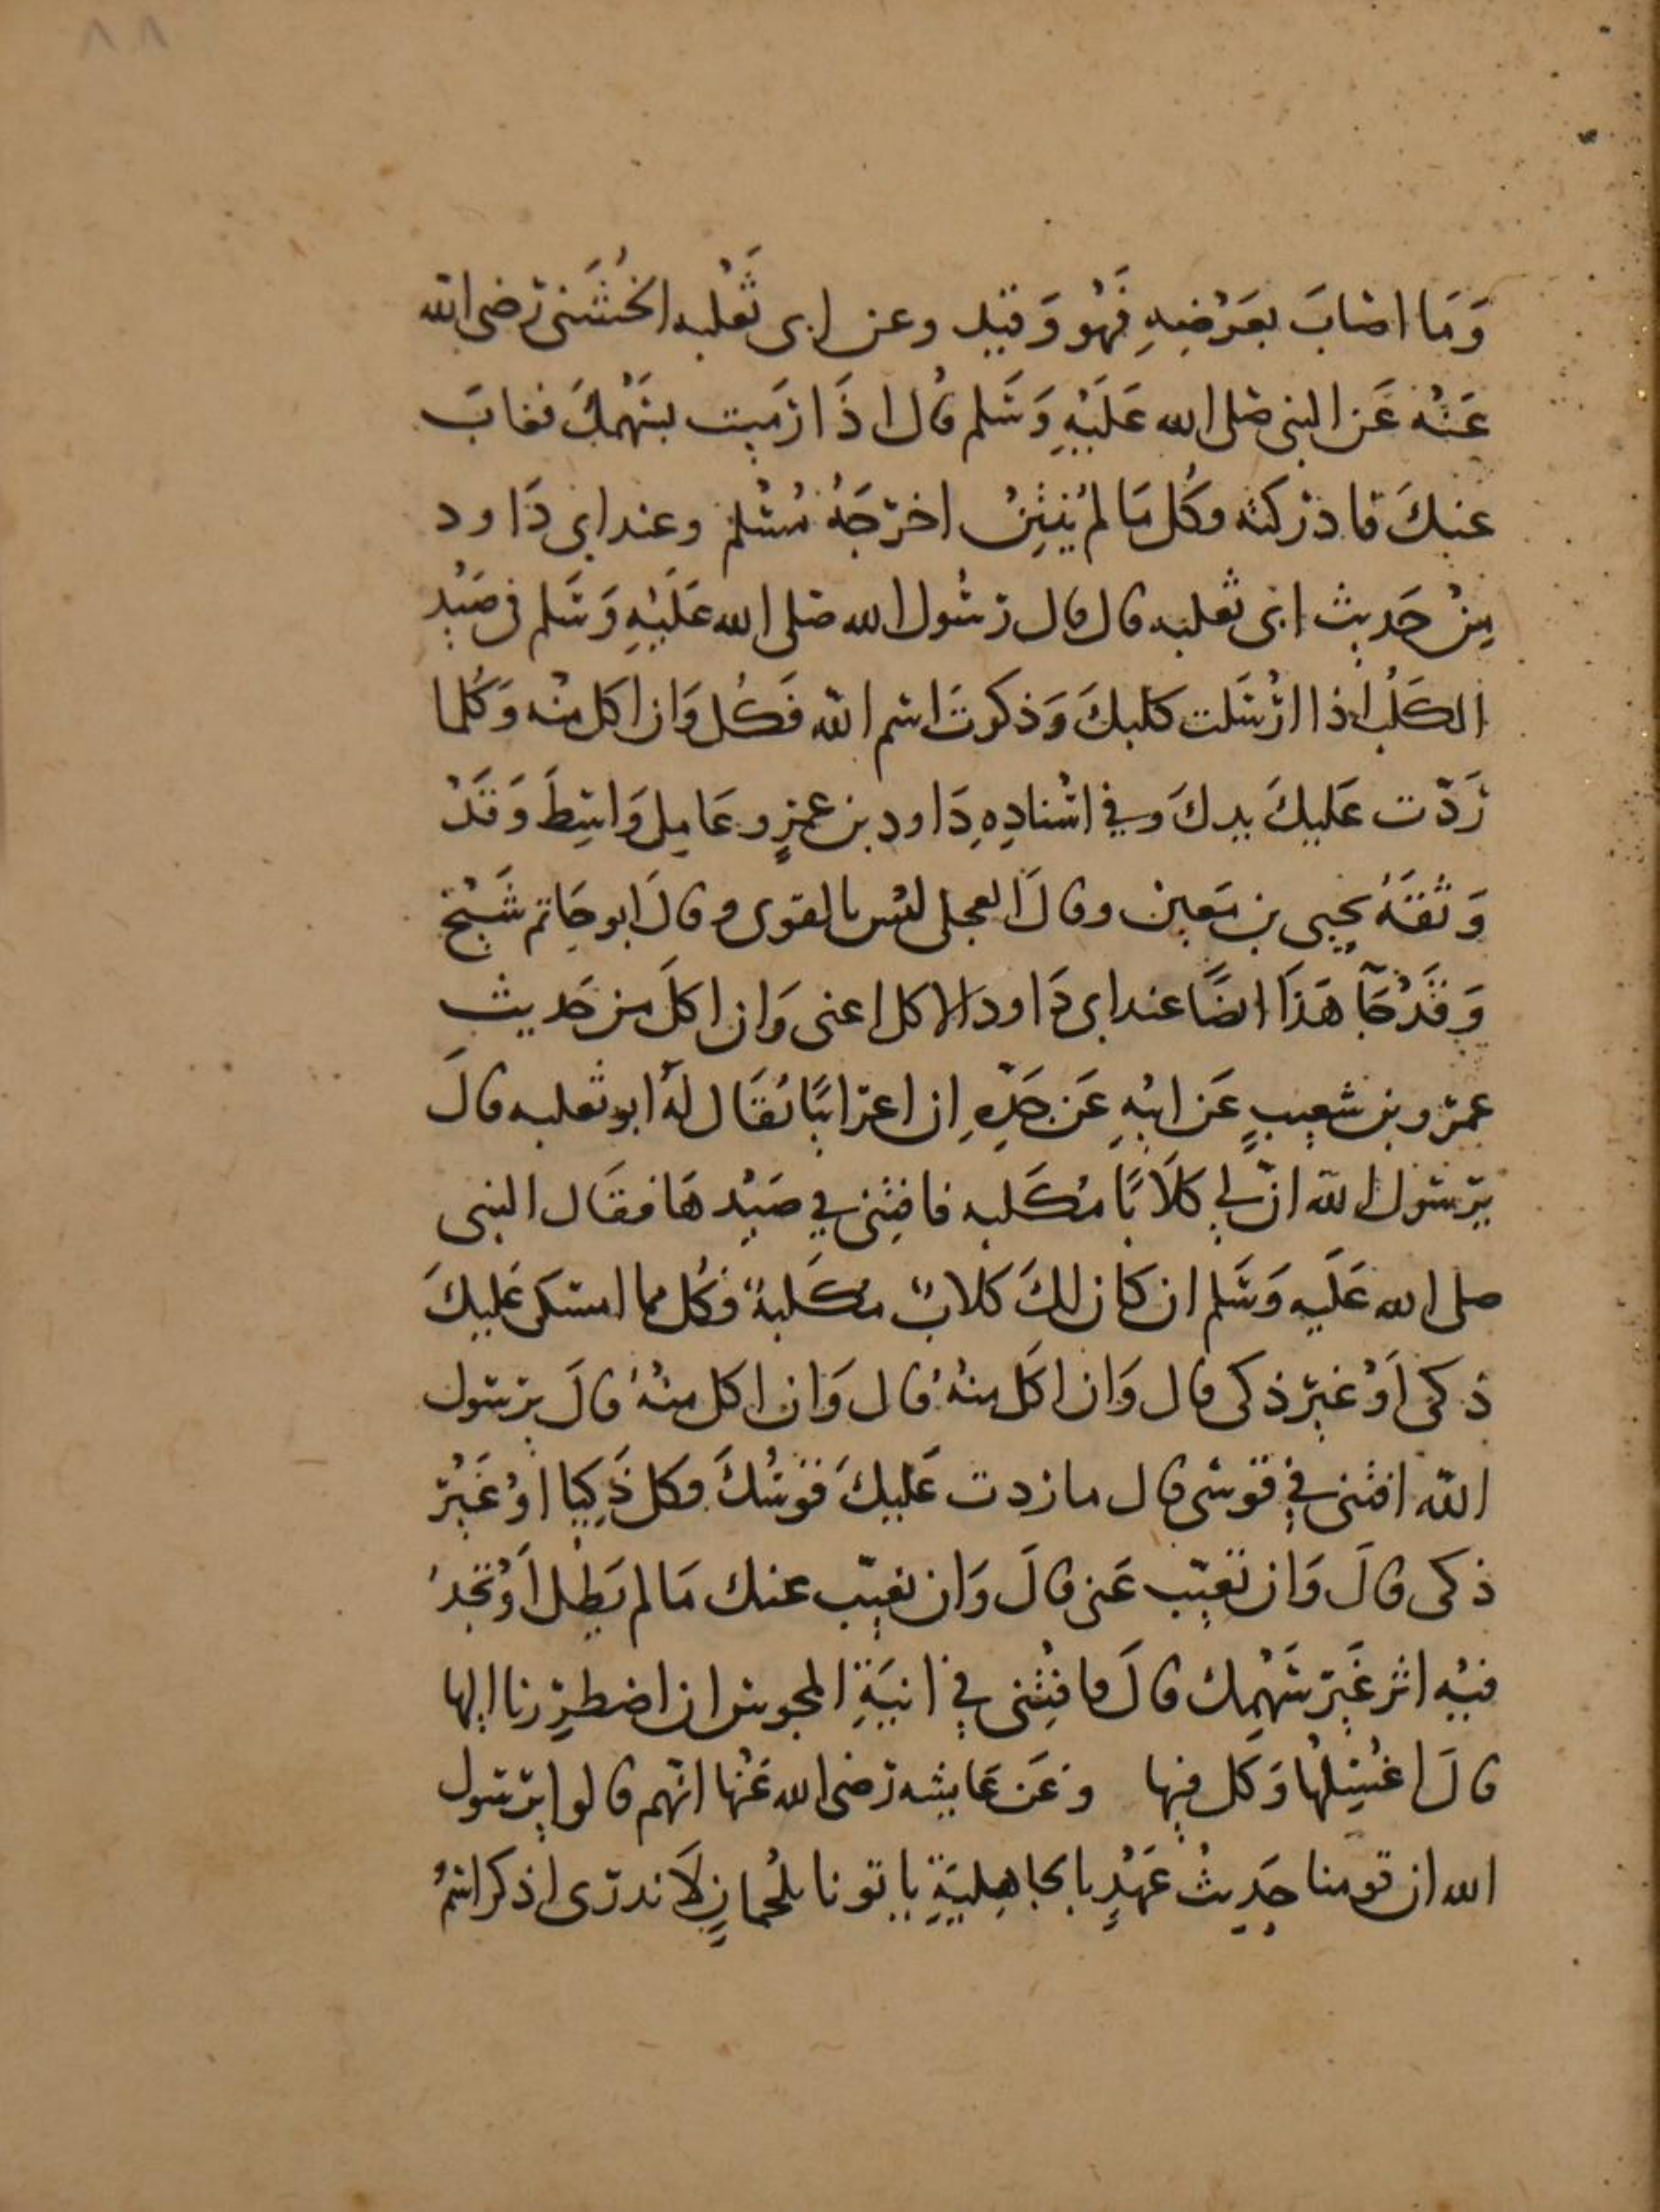 ٨٨
وَمَا اصَابَ بعَرْضِهِ فَهُوَ وَقيذ وعن ابى ثَعْلبه الخُشَنى رَضى الله
عَنْه عَن النبى صَلى الله عَلَيْهِ وَسَلم قال اذَا رَمَيت بسَهْمِكَ فغابَ
عنكَ فادْرَكته فكُل مَا لم يُنْتِنْ اخرَجَهُ مُسْلم وعند ابى دَاود
مِنْ حَديث ابى ثعلبه قال قال رَسُول الله صَلى الله عَلَيْهِ وَسَلم فى صَيْدِ
الكَلْب اذا ارْسَلت كلبكَ وَذكرتَ اسم الله فَكُل وَان اكل منْه وَكُل ما
رَدّت عَليكَ يدكَ وفي اسْنادِهِ دَاود بن عَمْرٍو عَامِل وَاسِط وَقَدْ
وَثقَهُ يحيى بن مَعين وقالَ العجلى ليْس بالقوى وقالَ ابو حَاتم شَيْخ
وَقَدْ جَآ هَذَا ايضًا عند ابى دَاود الاكل اعنى وَان اكلَ من حَديث
عمرو بن شعيبٍ عَن ابيْهِ عَن جَدِّهِ ان اعرَابيًا يُقَال لهُ ابو ثعلبه قالَ
يرَسُول الله انّ لي كلَابًا مُكَلبه فافتِنى في صَيْدهَا فقَال النبى
صلى الله عَلَيه وَسَلم ان كان لكَ كلابٌ مكَلبةٌ فكُل مما امسكن عَليكَ
ذكى اَوْ غيرَ ذكى قال وَان اكَل منهُ قال وَان اكل منهُ قالَ يرَسول
الله افتنى في قوسى قال ما ردت عَليكَ قوْسُكَ فكل ذَكِيا اوْ غَيْرَ
ذكى قالَ وَان تغيّب عَنى قالَ وَان تغيّب عنك مَا لم يَصِل اَوْ تجدُ
فيْه اثر غَيرَ سَهْمِك قالَ فافتِنى في انيَةِ المجوس ان اضطرِرنا اليها
قالَ اغْسِلْهَا وَكل فيها وَعَن عَايشه رَضى الله عَنْها انّهم قالوا يرَسول
الله ان قومنا حَدِيثُ عَهْدٍ بالجاهِليَّةِ ياتونا بلُحْمانٍ لَا ندرى اذكر اسْمُ